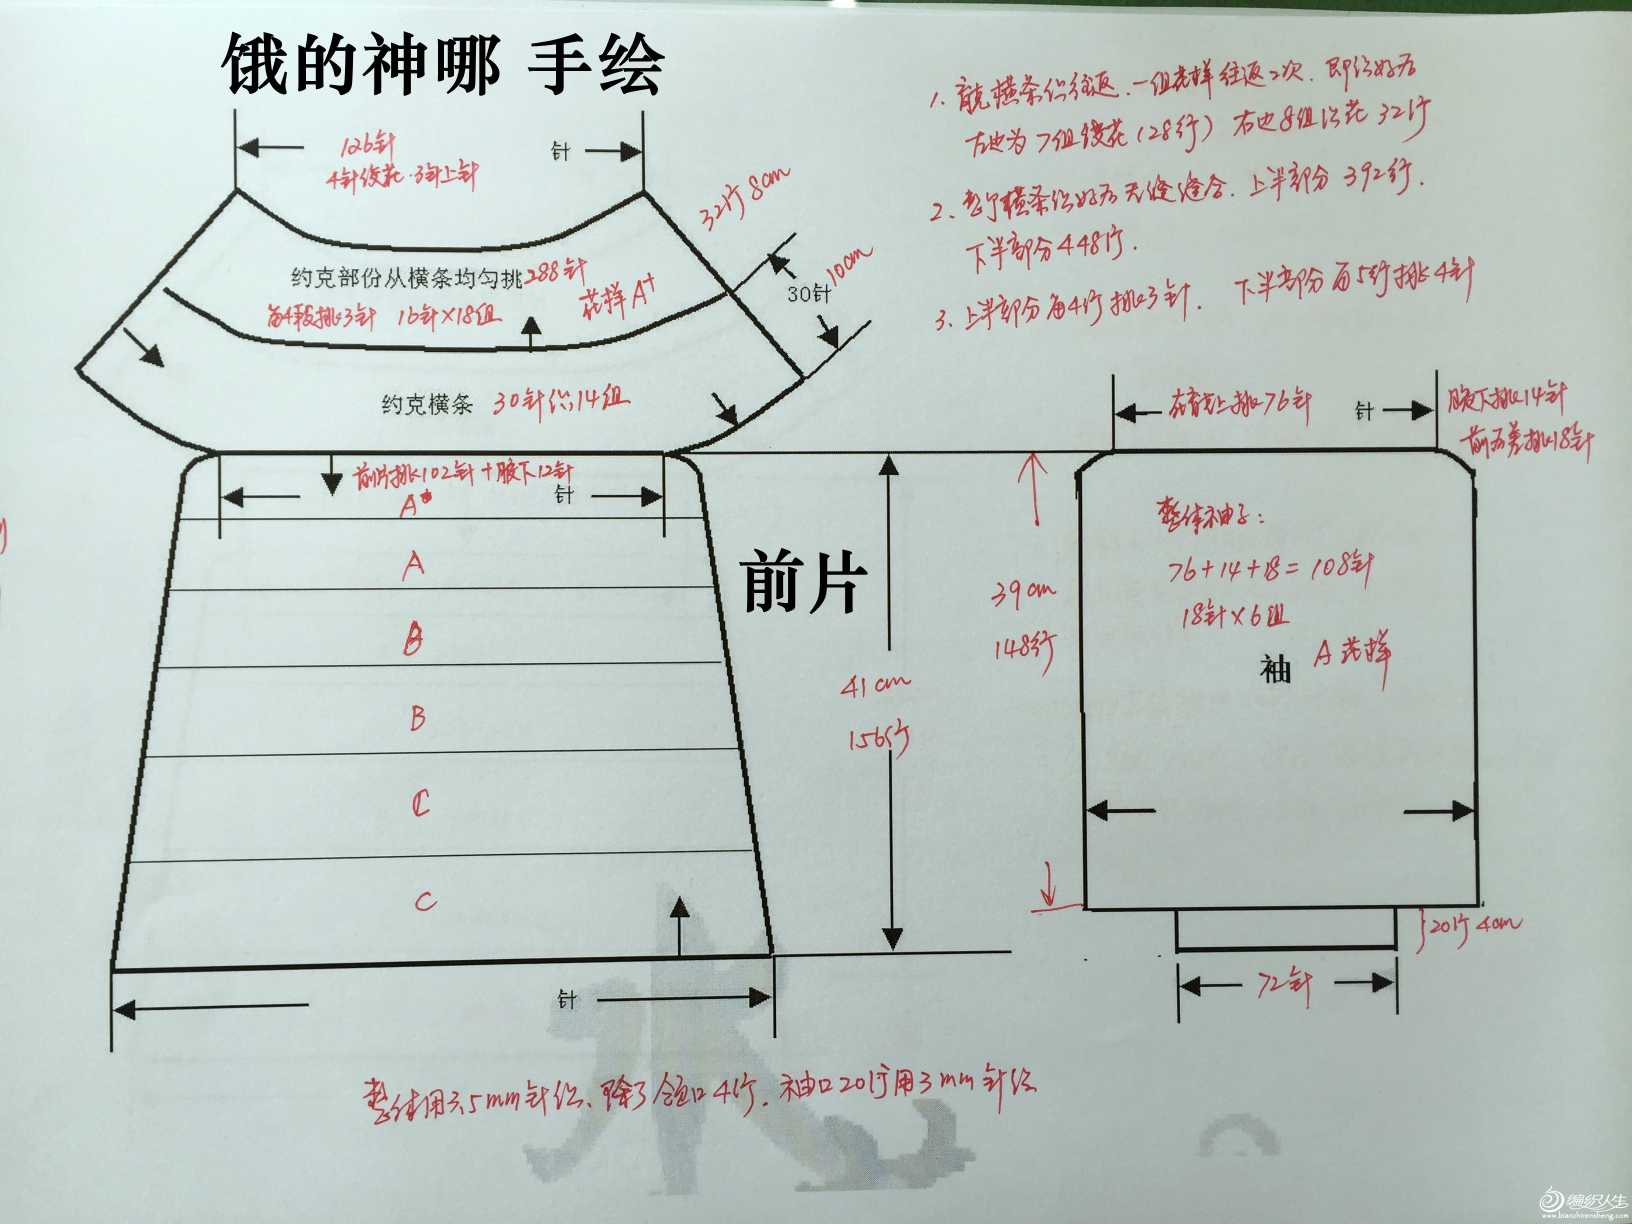 饿的神哪 手绘
126针
针
4针绞花·3针上针
32行 8cm
10cm
30针
约克部份从横条均匀挑288针
每4行挑3针 16针×18组
花样A+
约克横条 30针织14组
前片挑102针+腋下12针
针
A
A
B
B
C
C
前片
41cm
156行
针
1、育克横条织往返、一组花样往返2次、即织好后
左边为7组绞花(28行) 右边8组织花 32行
2、整个横条织好后无缝缝合、上半部分392行、
下半部分448行.
3、上半部分每4行挑3针、 下半部分每5行挑4针
在育克上挑76针
针
腋下挑14针
前后差挑18针
39cm
148行
整体袖子:
76+14+18=108针
18针×6组
袖
A花样
20行 4cm
72针
整体用3.5mm针织、除了领口4行、袖口20行用3mm针织
编织人生
www.bianzhirensheng.com